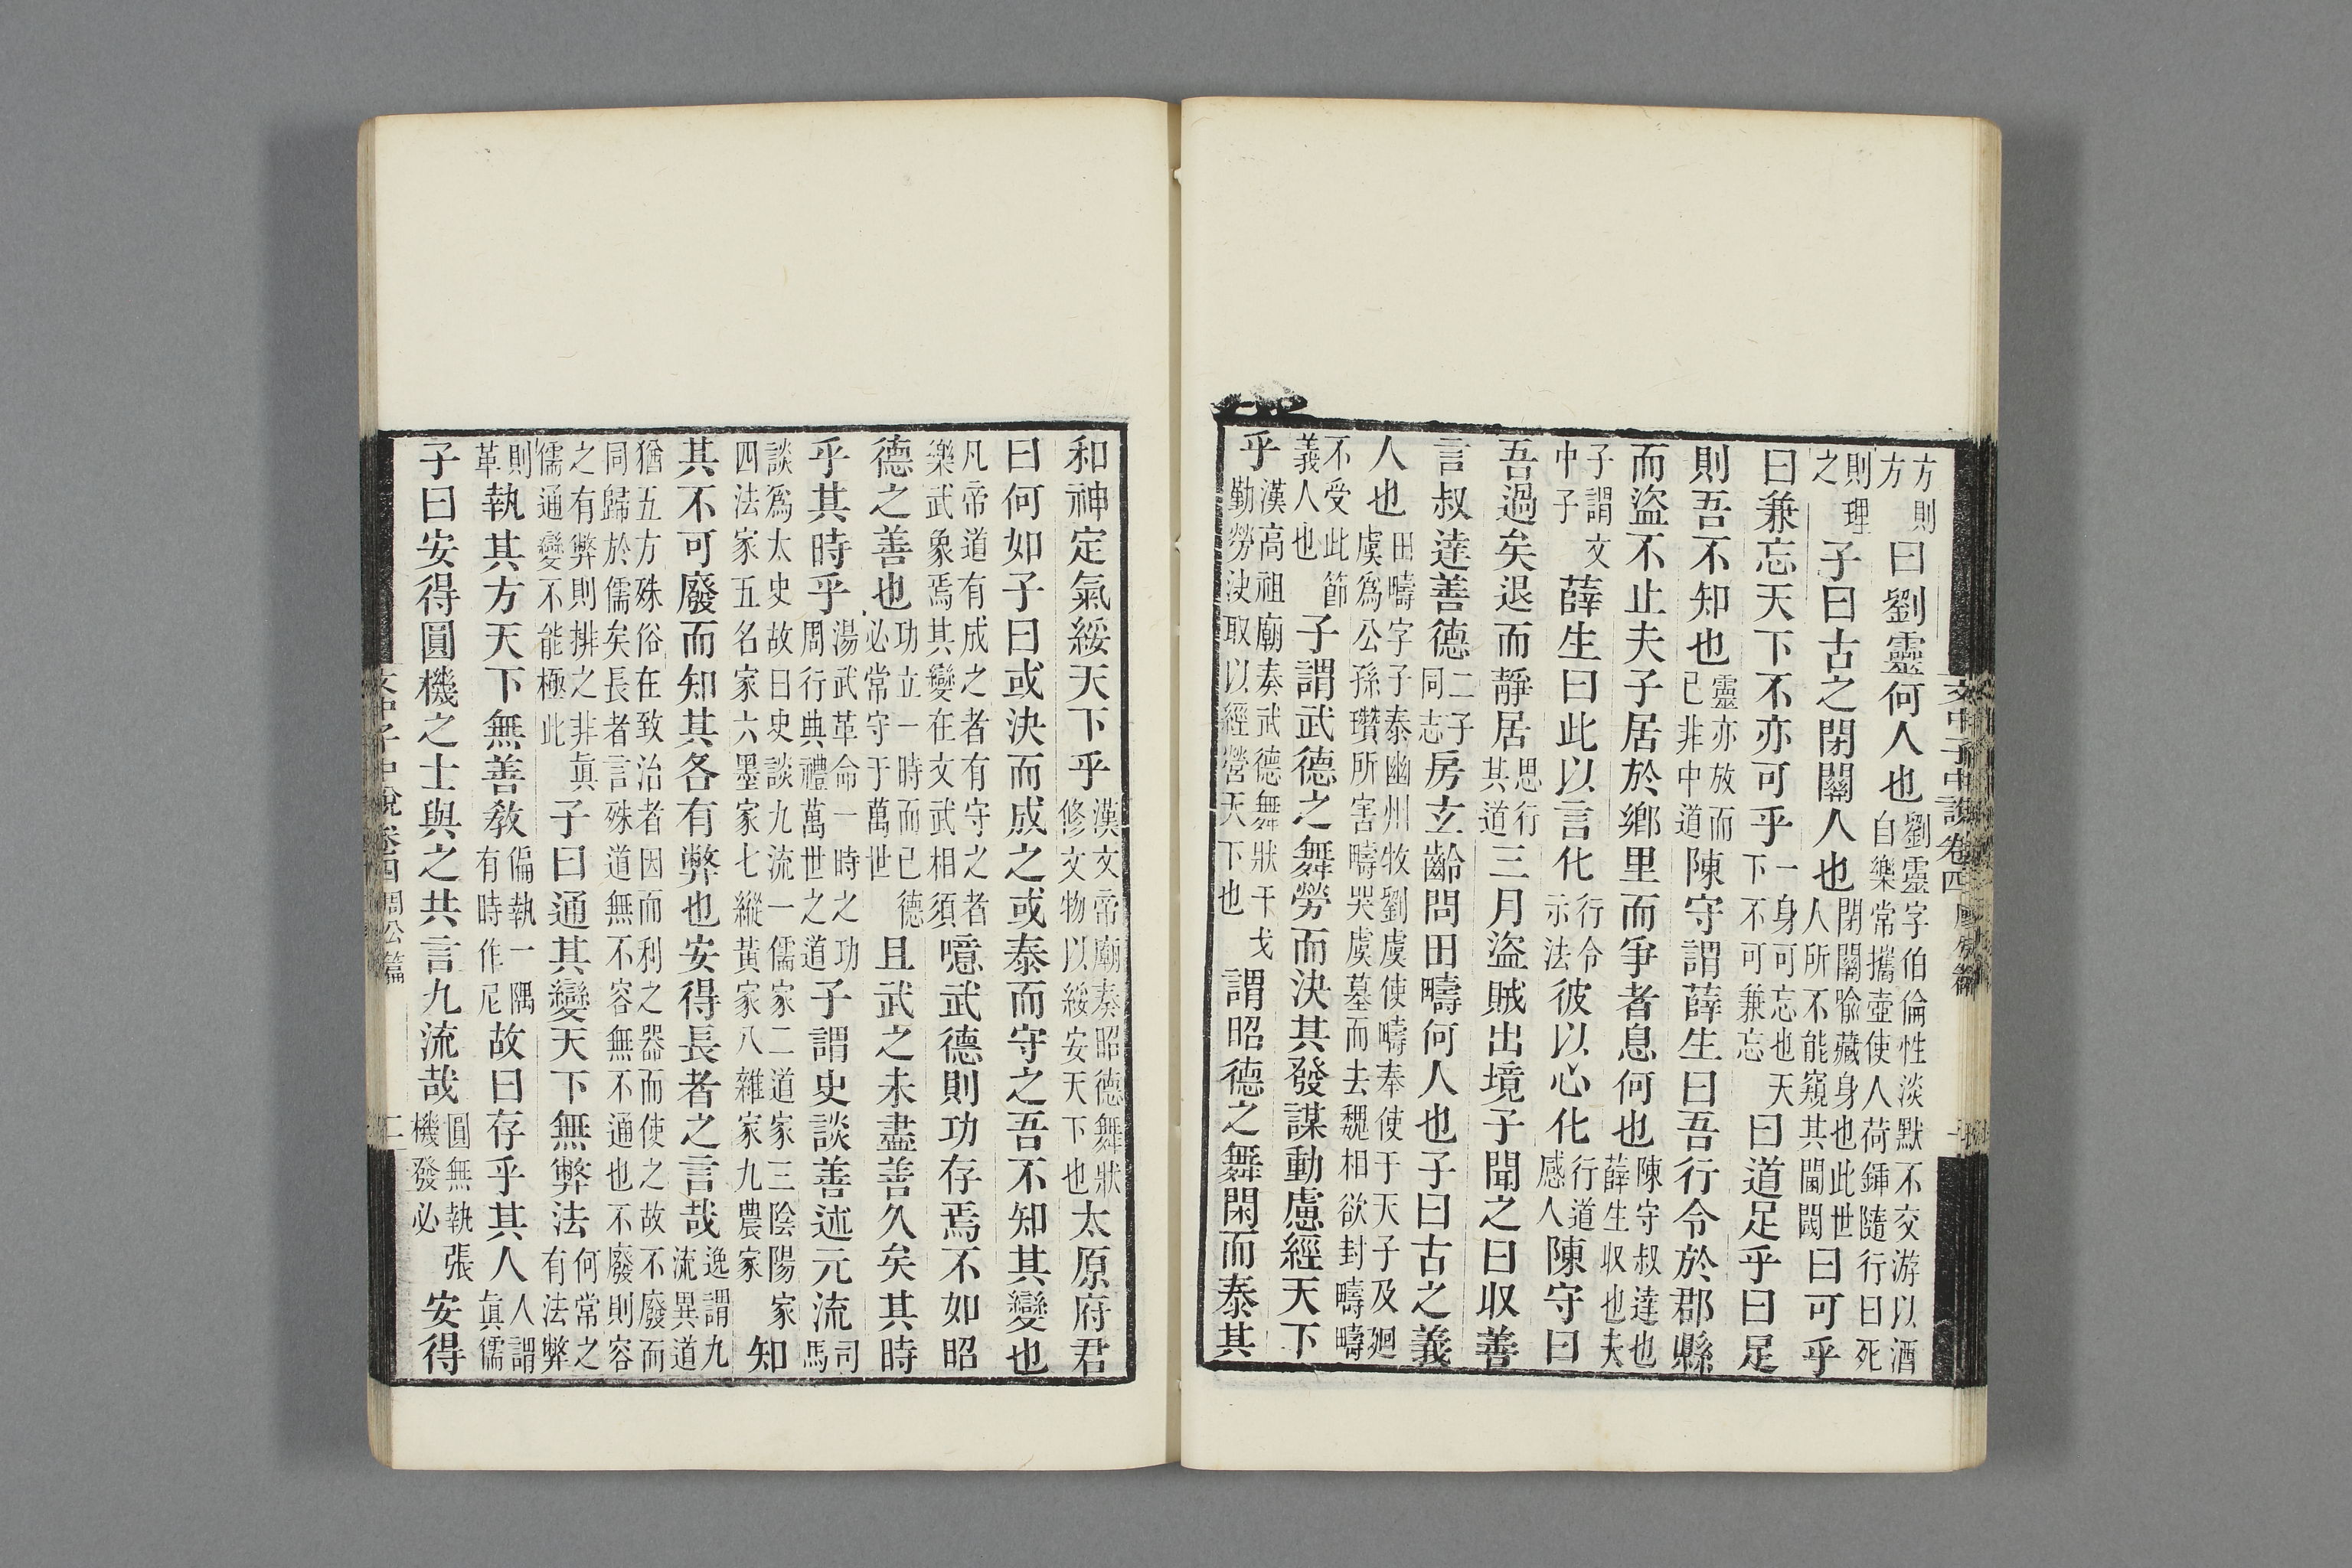 方則方曰劉靈何人也劉靈字伯倫性淡默不交游以酒自樂常攜壺使人荷鍤隨行曰死
則理之子曰古之閉關人也閉關喩藏身也此世人所不能窺其閫閾曰可乎
曰兼忘天下不亦可乎一身可忘也天下不可兼忘曰道足乎曰足
則吾不知也靈亦放而已非中道陳守謂薛生曰吾行令於郡縣
而盜不止夫子居於鄉里而爭者息何也陳守叔達也薛生収也夫
子謂文中子薛生曰此以言化行令示法彼以心化行道感人陳守曰
吾過矣退而靜居思行其道三月盜賊出境子聞之曰収善
言叔達善德二子同志房玄齡問田疇何人也子曰古之義
人也田疇字子泰幽州牧劉虞使疇奉使于天子及廻虞爲公孫瓚所害疇哭虞墓而去魏相欲封疇疇
不受此節義人也子謂武德之舞勞而決其發謀動慮經天下
乎漢高祖廟奏武德舞狀干戈勤勞決取以經營天下也謂昭德之舞閑而泰其
文中子中說卷四
和神定氣綏天下乎漢文帝廟奏昭德舞狀修文物以綏安天下也太原府君
曰何如子曰或決而成之或泰而守之吾不知其變也
凡帝道有成之者有守之者樂武象焉其變在文武相須噫武德則功存焉不如昭
德之善也功立一時而已德必常守于萬世且武之未盡善久矣其時
乎其時乎湯武革命一時之功周行典禮萬世之道子謂史談善述元流司馬
談爲太史故曰史談九流一儒家二道家三陰陽家四法家五名家六墨家七縱黃家八雜家九農家知
其不可廢而知其各有弊也安得長者之言哉逸謂九流異道
猶五方殊俗在致治者因而利之器而使之故不廢而同歸於儒矣長者言殊道無不容無不通也不廢則容
之有弊則排之非眞儒通變不能極此子曰通其變天下無弊法何常之有法弊
則革執其方天下無善敎偏執一隅有時作尼故曰存乎其人人謂眞儒
子曰安得圓機之士與之共言九流哉圓無執張機發必安得
文中子中說卷四 問公篇 二